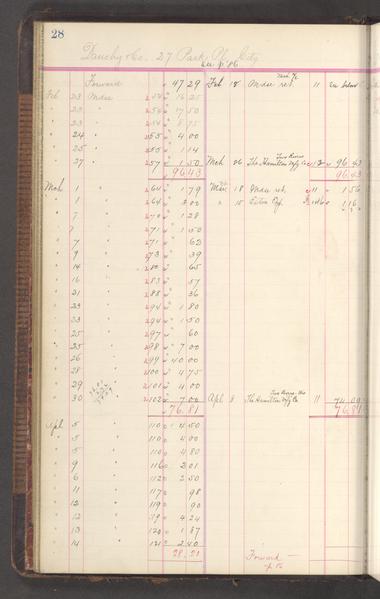 28
Dauchy & Co. 27 Park Pl. City
See p. 86
Forward 47 29 Feb 18 Mdse ret. 11
Feb 23 Mdse 16 25
" 23 " 17 50
" 23 " 8 75
" 24 " 255 4 00
" 25 " 255 1 14
" 27 " 257 1 50 Mch 26 The Hamilton Mfg Co 12 96 43
96 43 96 43
Mch 1 " 264 1 79 Mar 18 Mdse ret. 11 1 56
" 1 " 264 3 00 " 15 1 16
" 7 " 270 1 28
" 7 " 271 1 50
" 7 " 271 62
" 9 " 273 39
" 14 " 280 65
" 16 " 285 57
" 21 " 288 36
" 23 " 294 1 80
" 23 " 294 1 50
" 25 " 297 60
" 25 " 298 7 00
" 26 " 299 40 00
" 28 " 100 4 75
" 29 " 101 4 00
" 30 " 102 7 00 Apl 8 The Hamilton Mfg Co 11 74 09
76 81 76 81
Apl 5 " 110 4 50
" 5 " 110 4 00
" 5 " 110 4 80
" 9 " 116 2 01
" 6 " 112 2 50
" 11 " 117 98
" 12 " 119 90
" 12 " 4 24
" 13 " 120 1 87
" 14 " 121 2 40
28 21 Forward
p. 86